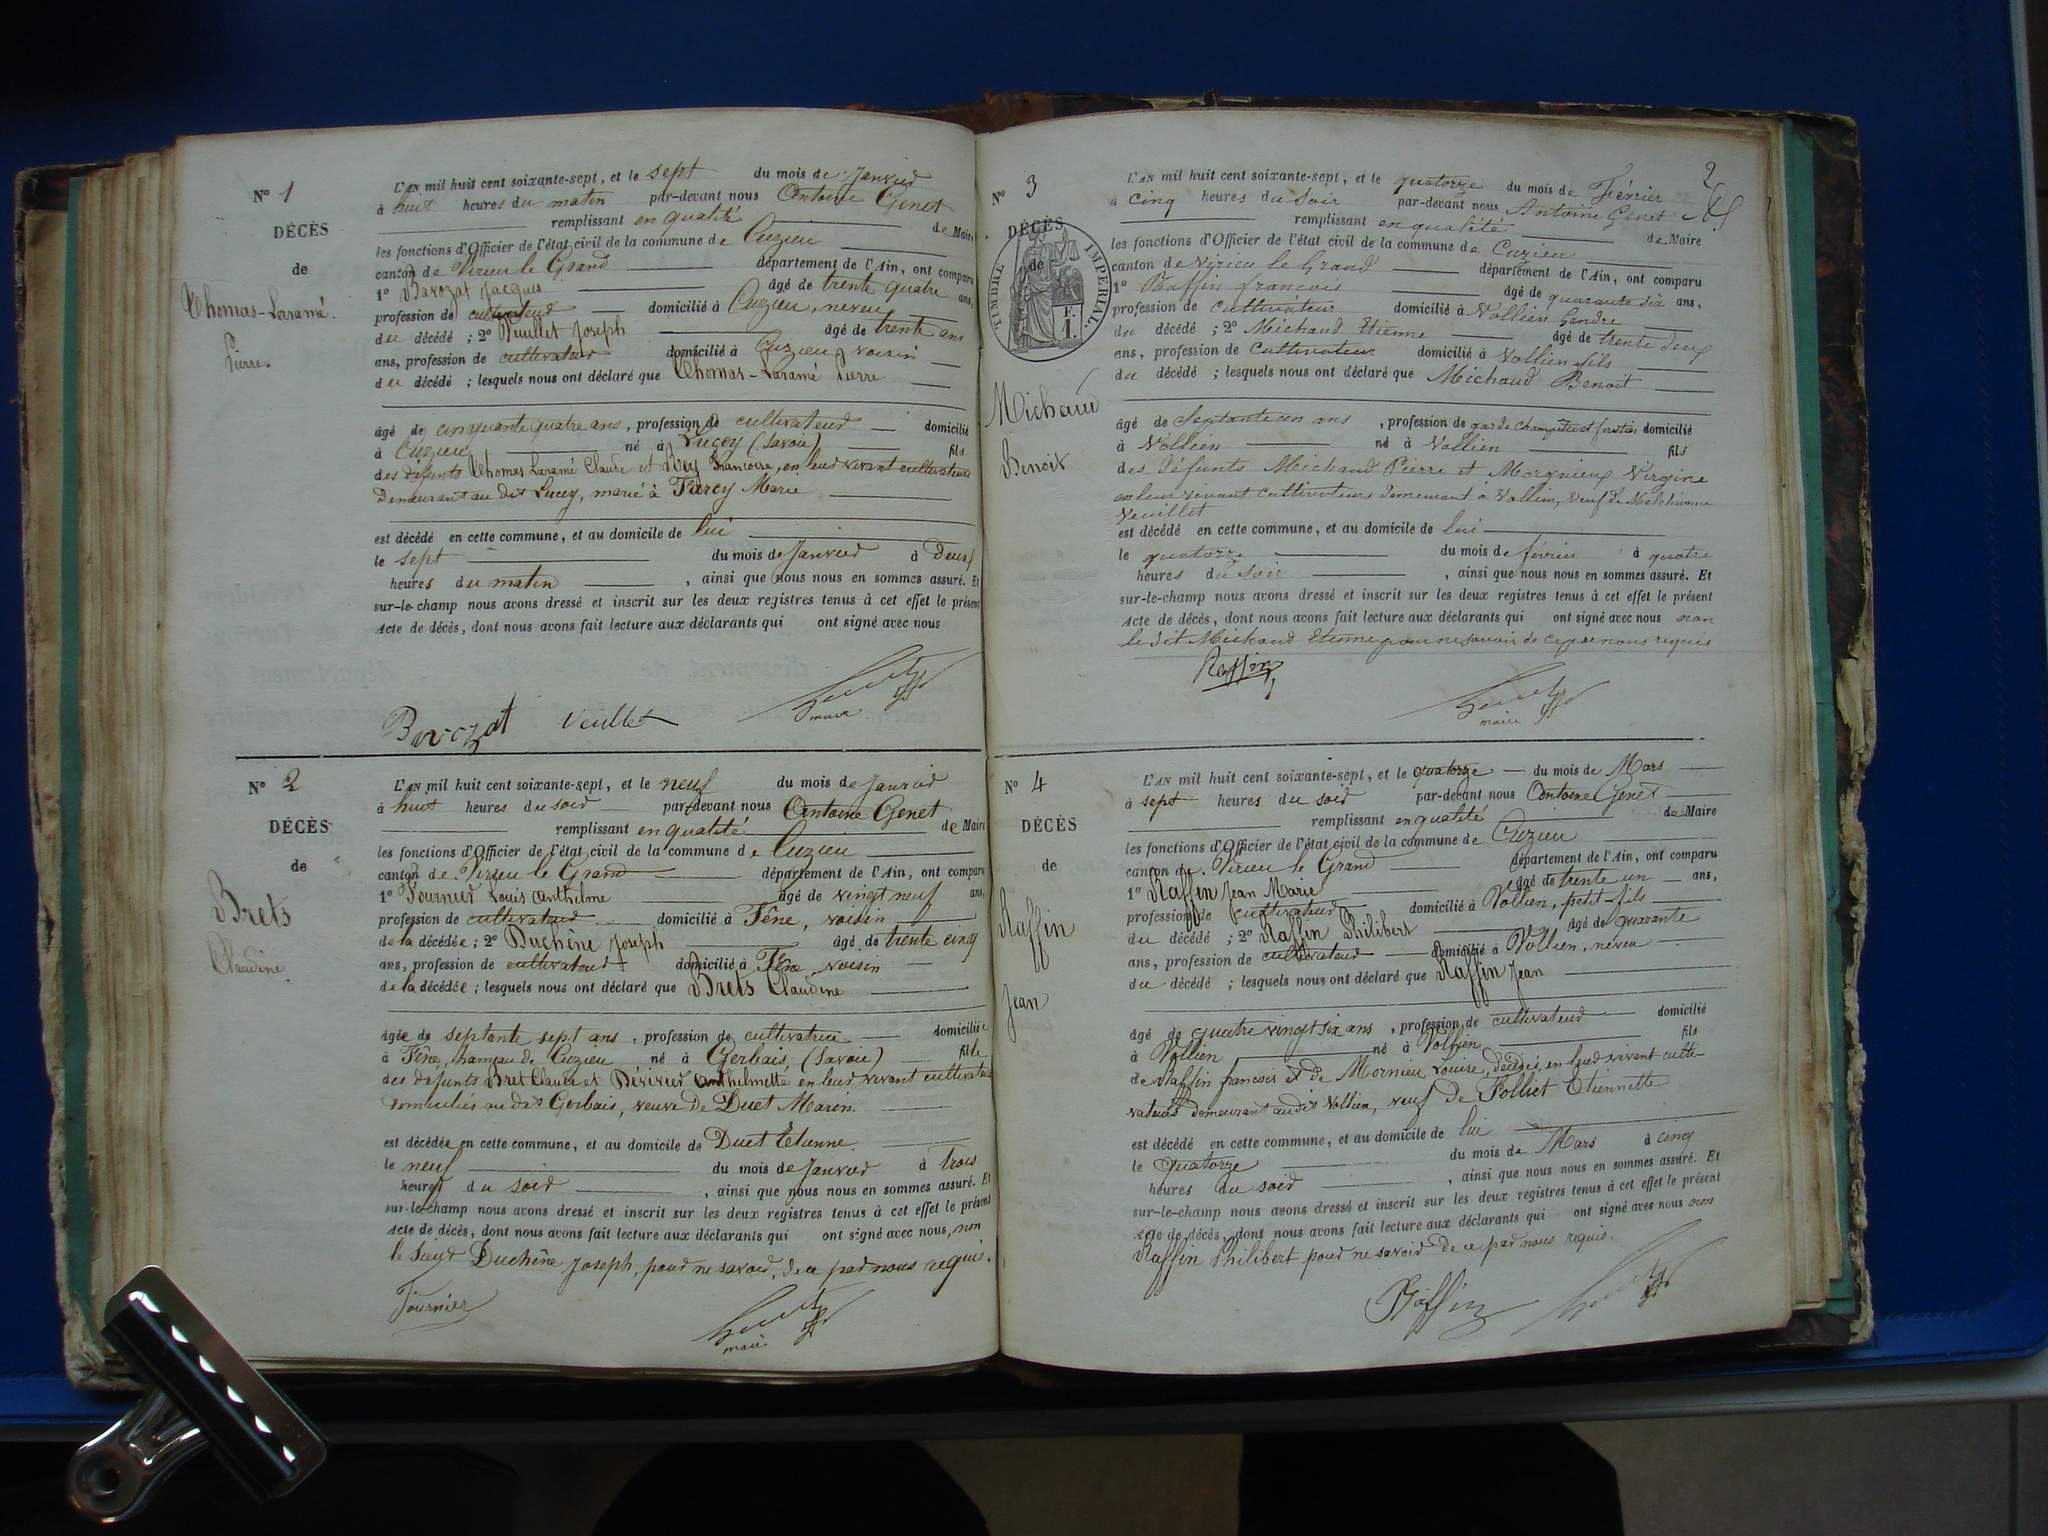 N° 1
DÉCÈS
de
Thomas-Laramé
Pierre
L'AN mil huit cent soixante-sept, et le sept du mois de Janvier
à huit heures du matin par-devant nous Antoine Genet
remplissant en qualité de Maire
les fonctions d'Officier de l'état civil de la commune de Cuzieu
canton de Virieu le Grand département de l'Ain, ont comparu
1° Bavozat Jacques âgé de trente quatre ans,
profession de cultivateur domicilié à Cuzieu, neveu
du décédé ; 2° Veuillet Joseph âgé de trente ans
ans, profession de cultivateur domicilié à Cuzieu, voisin
du décédé ; lesquels nous ont déclaré que Thomas-Laramé Pierre
âgé de cinquante quatre ans, profession de cultivateur domicilié
à Cuzieu né à Lucey (Savoie) fils
des défunts Thomas Laramé Claude et Rey Francoise, en leur vivant cultivateurs
Demeurant au dit Lucey, marié à Farcy Marie
est décédé en cette commune, et au domicile de lui
le sept du mois de Janvier à Deux
heures du matin , ainsi que nous nous en sommes assuré. Et
sur-le-champ nous avons dressé et inscrit sur les deux registres tenus à cet effet le présent
Acte de décès, dont nous avons fait lecture aux déclarants qui ont signé avec nous
Bavozat Veuillet
maire
N° 2
DÉCÈS
de
Brets
Claudine
L'AN mil huit cent soixante-sept, et le neuf du mois de Janvier
à huit heures du soir par-devant nous Antoine Genet
remplissant en qualité de Maire
les fonctions d'Officier de l'état civil de la commune de Cuzieu
canton de Virieu le Grand département de l'Ain, ont comparu
1° Fournier Louis Anthelme âgé de vingt neuf ans,
profession de cultivateur domicilié à Fêne, voisin
de la décédée ; 2° Duchêne Joseph âgé de trente cinq
ans, profession de cultivateur domicilié à Fêne, voisin
de la décédée ; lesquels nous ont déclaré que Brets Claudine
âgée de septante sept ans, profession de cultivatrice domiciliée
à Fêne, hameau de Cuzieu né à Gerbais (Savoie) fille
des défunts Bret Claude et Anthelmette en leur vivant cultivateurs
domiciliés au dit Gerbais, veuve de Duet Marin
est décédée en cette commune, et au domicile de Duet Etienne
le neuf du mois de Janvier à trois
heures du soir , ainsi que nous nous en sommes assuré. Et
sur-le-champ nous avons dressé et inscrit sur les deux registres tenus à cet effet le présent
Acte de décès, dont nous avons fait lecture aux déclarants qui ont signé avec nous, non
le sieur Duchêne Joseph, pour ne savoir, de ce par nous requis.
Fournier
maire
2
N° 3
DÉCÈS
de
TIMBRE IMPÉRIAL
F.
1.
Michaud
Benoit
L'AN mil huit cent soixante-sept, et le quatorze du mois de Février
à cinq heures du soir par-devant nous Antoine Genet
remplissant en qualité de Maire
les fonctions d'Officier de l'état civil de la commune de Cuzieu
canton de Virieu le Grand département de l'Ain, ont comparu
1° Raffin francois âgé de quarante six ans,
profession de cultivateur domicilié à Vollien Gendre
du décédé ; 2° Michaud Etienne âgé de trente deux
ans, profession de Cultivateur domicilié à Vollien fils
du décédé ; lesquels nous ont déclaré que Michaud Benoit
âgé de Septante un ans , profession de garde champêtre et forestier domicilié
à Vollien né à Vollien fils
des défunts Michaud Pierre et Morgnieux Virgine
en leur vivant cultivateurs demeurant à Vollien, veuf de Melchionne
Veuillet
est décédé en cette commune, et au domicile de lui
le quatorze du mois de février à quatre
heures du soir , ainsi que nous nous en sommes assuré. Et
sur-le-champ nous avons dressé et inscrit sur les deux registres tenus à cet effet le présent
Acte de décès, dont nous avons fait lecture aux déclarants qui ont signé avec nous non
le dit Michaud Etienne pour ne savoir de ce par nous requis
Raffin
maire
N° 4
DÉCÈS
de
Raffin
Jean
L'AN mil huit cent soixante-sept, et le quatorze du mois de Mars
à sept heures du soir par-devant nous Antoine Genet
remplissant en qualité de Maire
les fonctions d'Officier de l'état civil de la commune de Cuzieu
canton de Virieu le Grand département de l'Ain, ont comparu
1° Raffin Jean Marie âgé de trente un ans,
profession de cultivateur domicilié à Vollien, petit-fils
du décédé ; 2° Raffin Philibert âgé de quarante
ans, profession de cultivateur domicilié à Vollien, neveu
du décédé ; lesquels nous ont déclaré que Raffin Jean
âgé de quatre vingt six ans , profession de cultivateur domicilié
à Vollien né à Vollien fils
de Raffin francois et de Mornieu Louise, décédés, en leur vivant culti-
vateurs demeurant audit Vollien, veuf de Folliet Etiennette
est décédé en cette commune, et au domicile de lui
le quatorze du mois de Mars à cinq
heures du soir , ainsi que nous nous en sommes assuré. Et
sur-le-champ nous avons dressé et inscrit sur les deux registres tenus à cet effet le présent
Acte de décès, dont nous avons fait lecture aux déclarants qui ont signé avec nous non
Raffin Philibert pour ne savoir de ce par nous requis.
Raffin